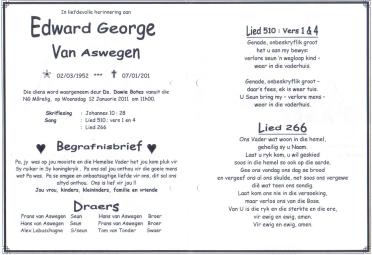 In liefdevolle herinnering aan
Edward George
Van Aswegen
02/03/1952 *** 07/01/201
Die diens word waargeneem deur Ds. Dawie Botes vanuit die
NG Môrelig, op Woensdag 12 Januarie 2011 om 11h00.
Skriflesing : Johannes 10 : 28
Sang : Lied 510 : vers 1 en 4
: Lied 266
Begrafnisbrief
Pa, jy was op jou mooiste en die Hemelse Vader het jou kom pluk vir
Sy ruiker in Sy koningkryk. Pa ons sal jou onthou vir die goeie mens
wat Pa was. Pa se omgee en onbaatsugtige liefde vir ons, dit sal ons
altyd onthou. Ons is lief vir jou !!
Jou vrou, kinders, kleinkinders, familie en vriende
Draers
Frans van Aswegen Seun Hans van Aswegen Broer
Hans van Aswegen Seun Frans van Aswegen Broer
Alex Labuschagne S/seun Tom van Tonder Swaer
Lied 510 : Vers 1 & 4
Genade, onbeskryflik groot
het u aan my bewys:
verlore seun 'n wegloop kind -
weer in die vaderhuis.
Genade, onbeskryflik groot –
daar's fees, ek is weer tuis.
U Seun bring my - verlore mens -
weer in die vaderhuis.
Lied 266
Ons Vader wat woon in die hemel,
geheilig sy u Naam.
Laat u ryk kom, u wil geskied
soos in die hemel so ook op die aarde.
Gee ons vandag ons dag se brood
en vergeef ons al ons skulde, net soos ons vergewe
dié wat teen ons sondig.
Laat kom ons nie in die versoeking,
maar verlos ons van die Bose.
Van U is die ryk en die sterkte en die ere,
vir ewig en ewig, amen.
Vir ewig en ewig, amen.